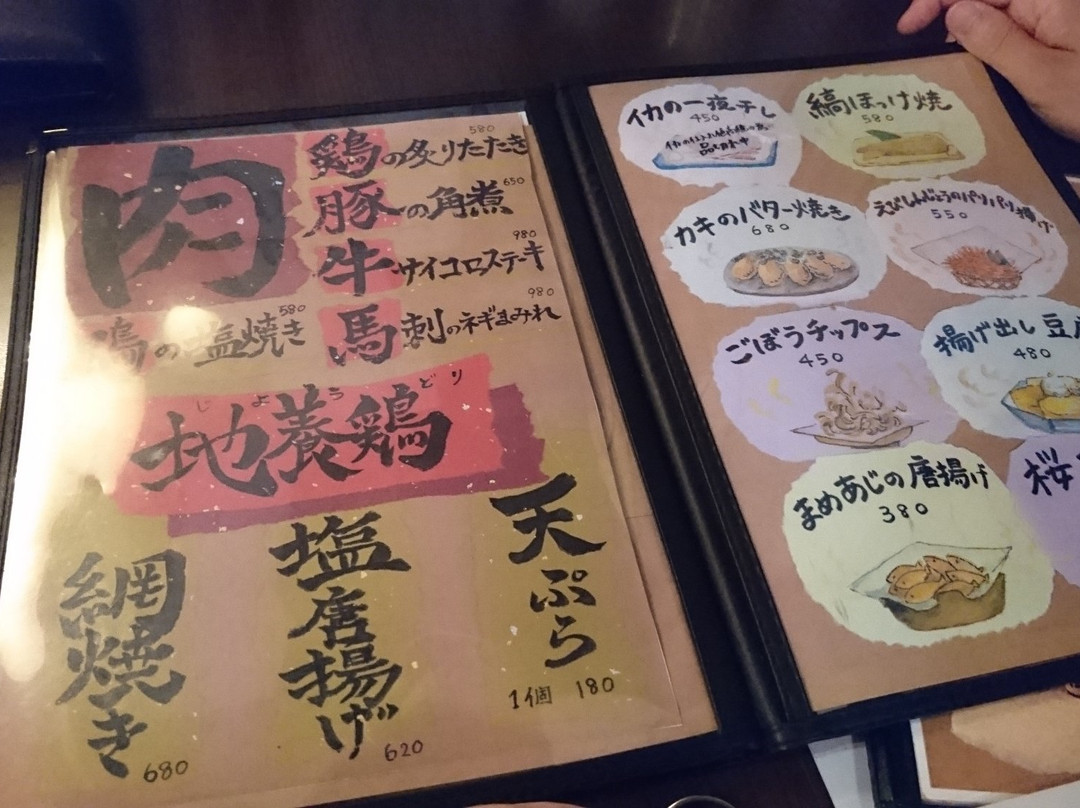 肉
鶏の炙りたたき
580
豚の角煮
650
牛サイコロステーキ
980
馬刺のネギまみれ
980
鶏の塩焼き
580
じようどり
地養鶏
網焼き
680
塩唐揚げ
620
天ぷら
1個 180
イカの一夜干し
450
縞ほっけ焼
580
カキのバター焼き
680
えびしんじょうのパリパリ揚げ
550
ごぼうチップス
450
揚げ出し豆腐
480
まめあじの唐揚げ
380
桜